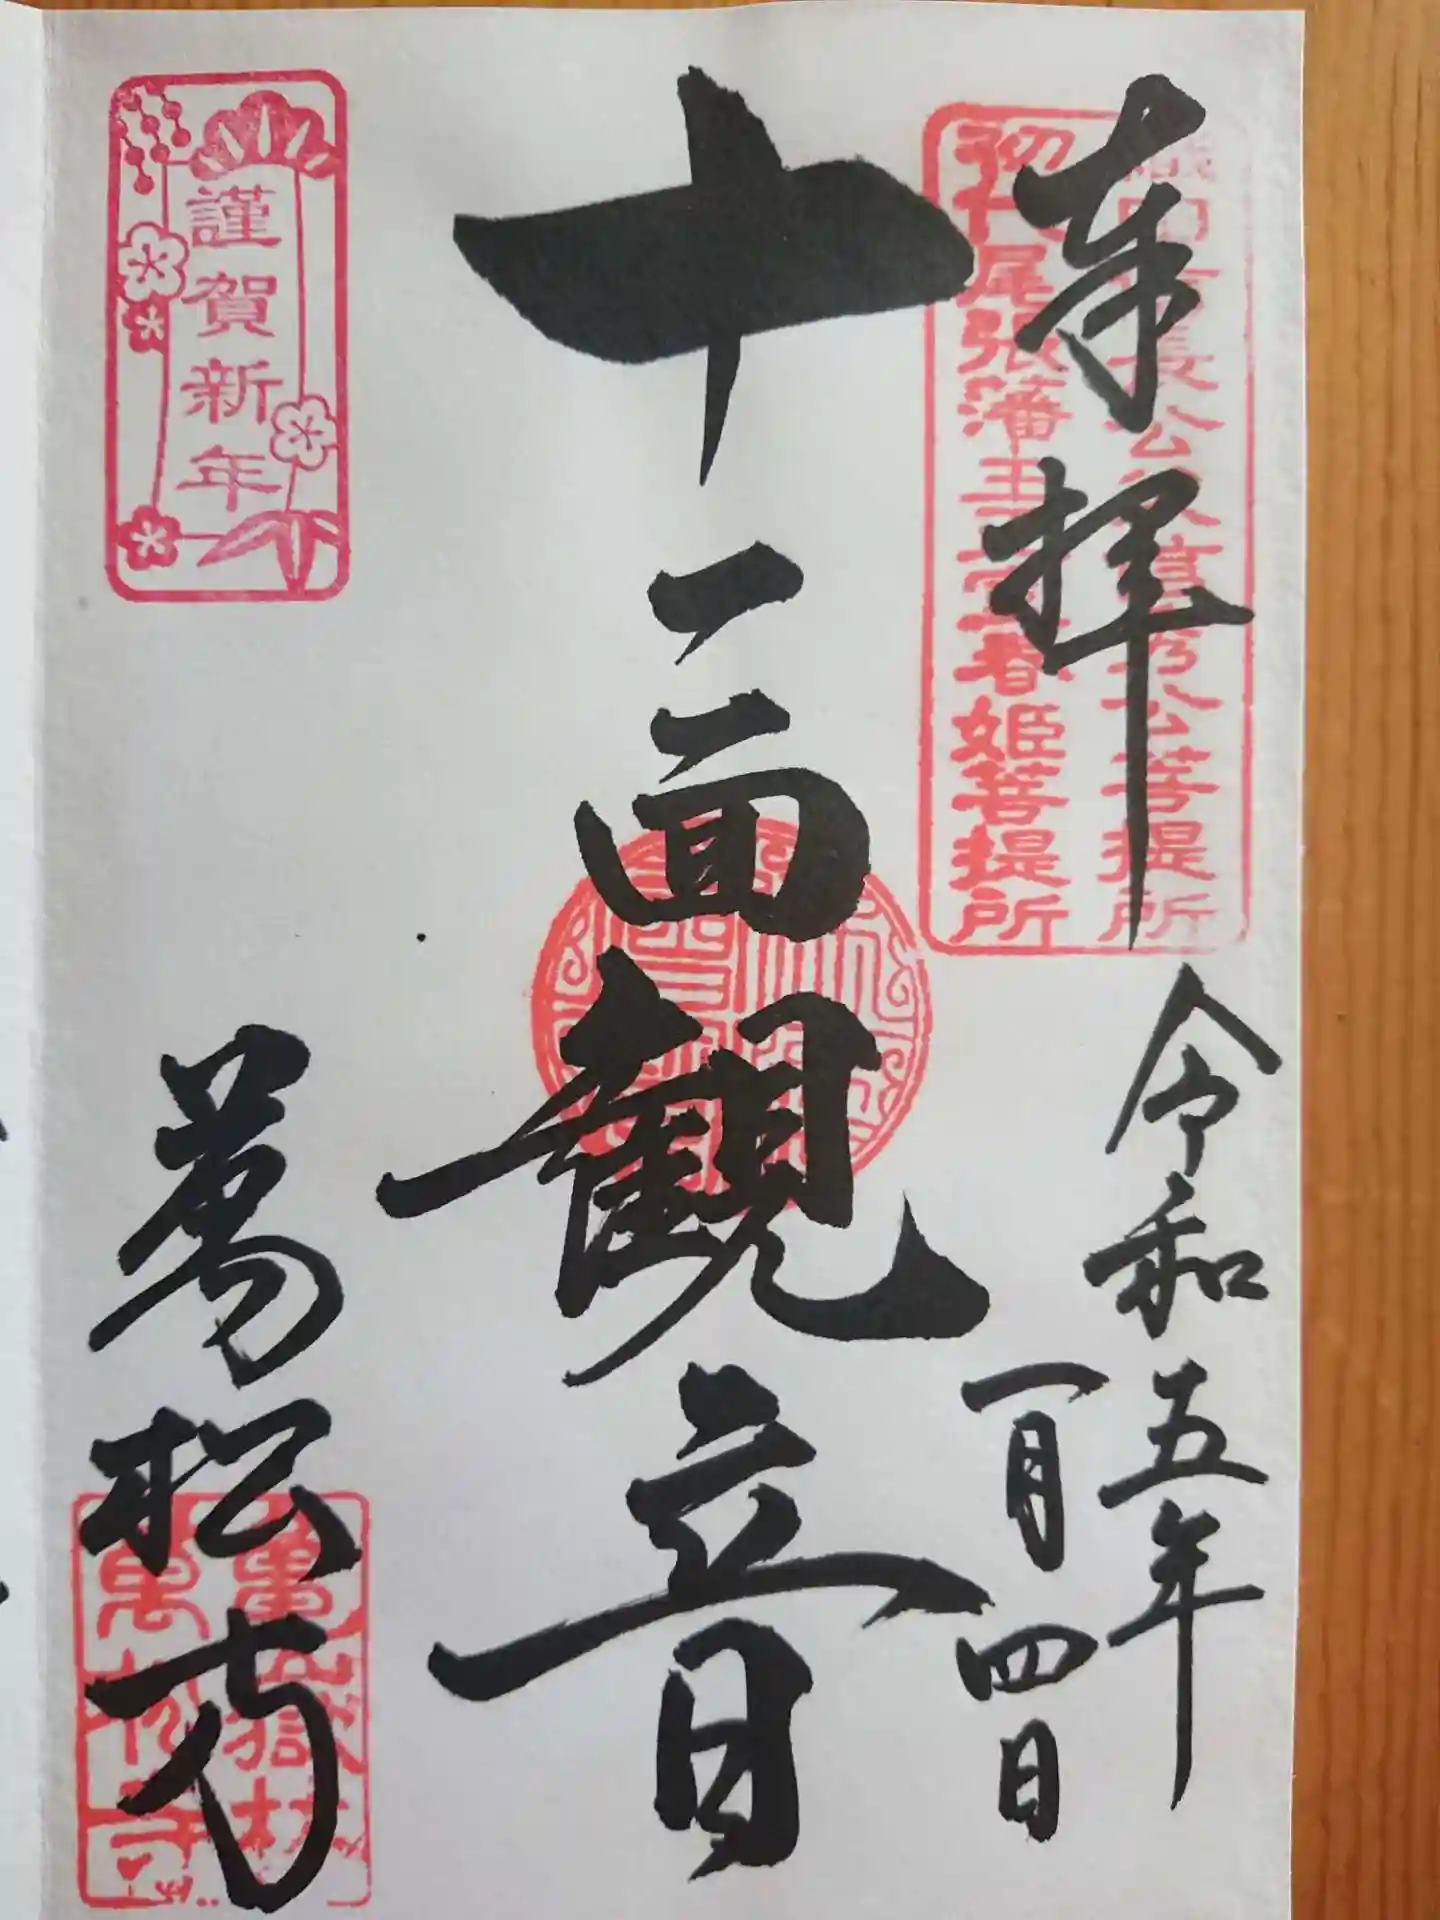 奉拝
令和五年
一月四日
織田信長公 秀公菩提所
初代尾張藩主正室春姫菩提所
十一面観音
謹賀新年
萬松寺
亀嶽林
萬松寺